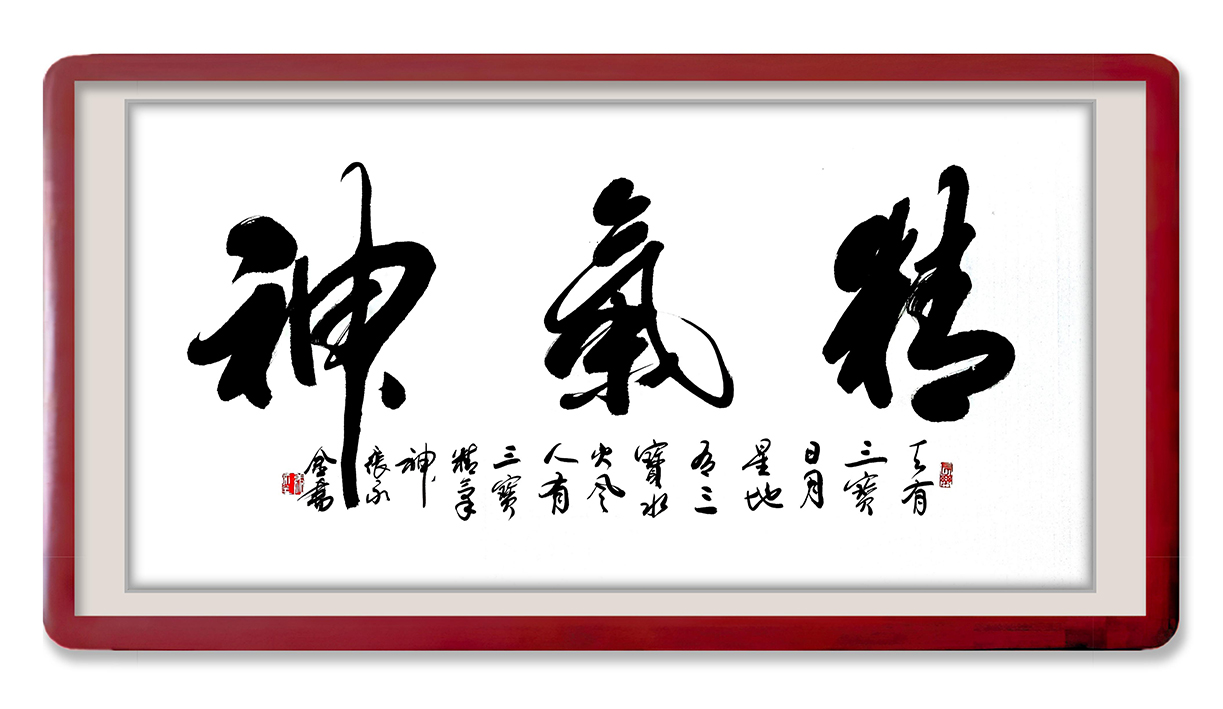 精氣神
天有
三寶
日月
星地
有三
寶水
火風
人有
三寶
精氣
神
張永
金書